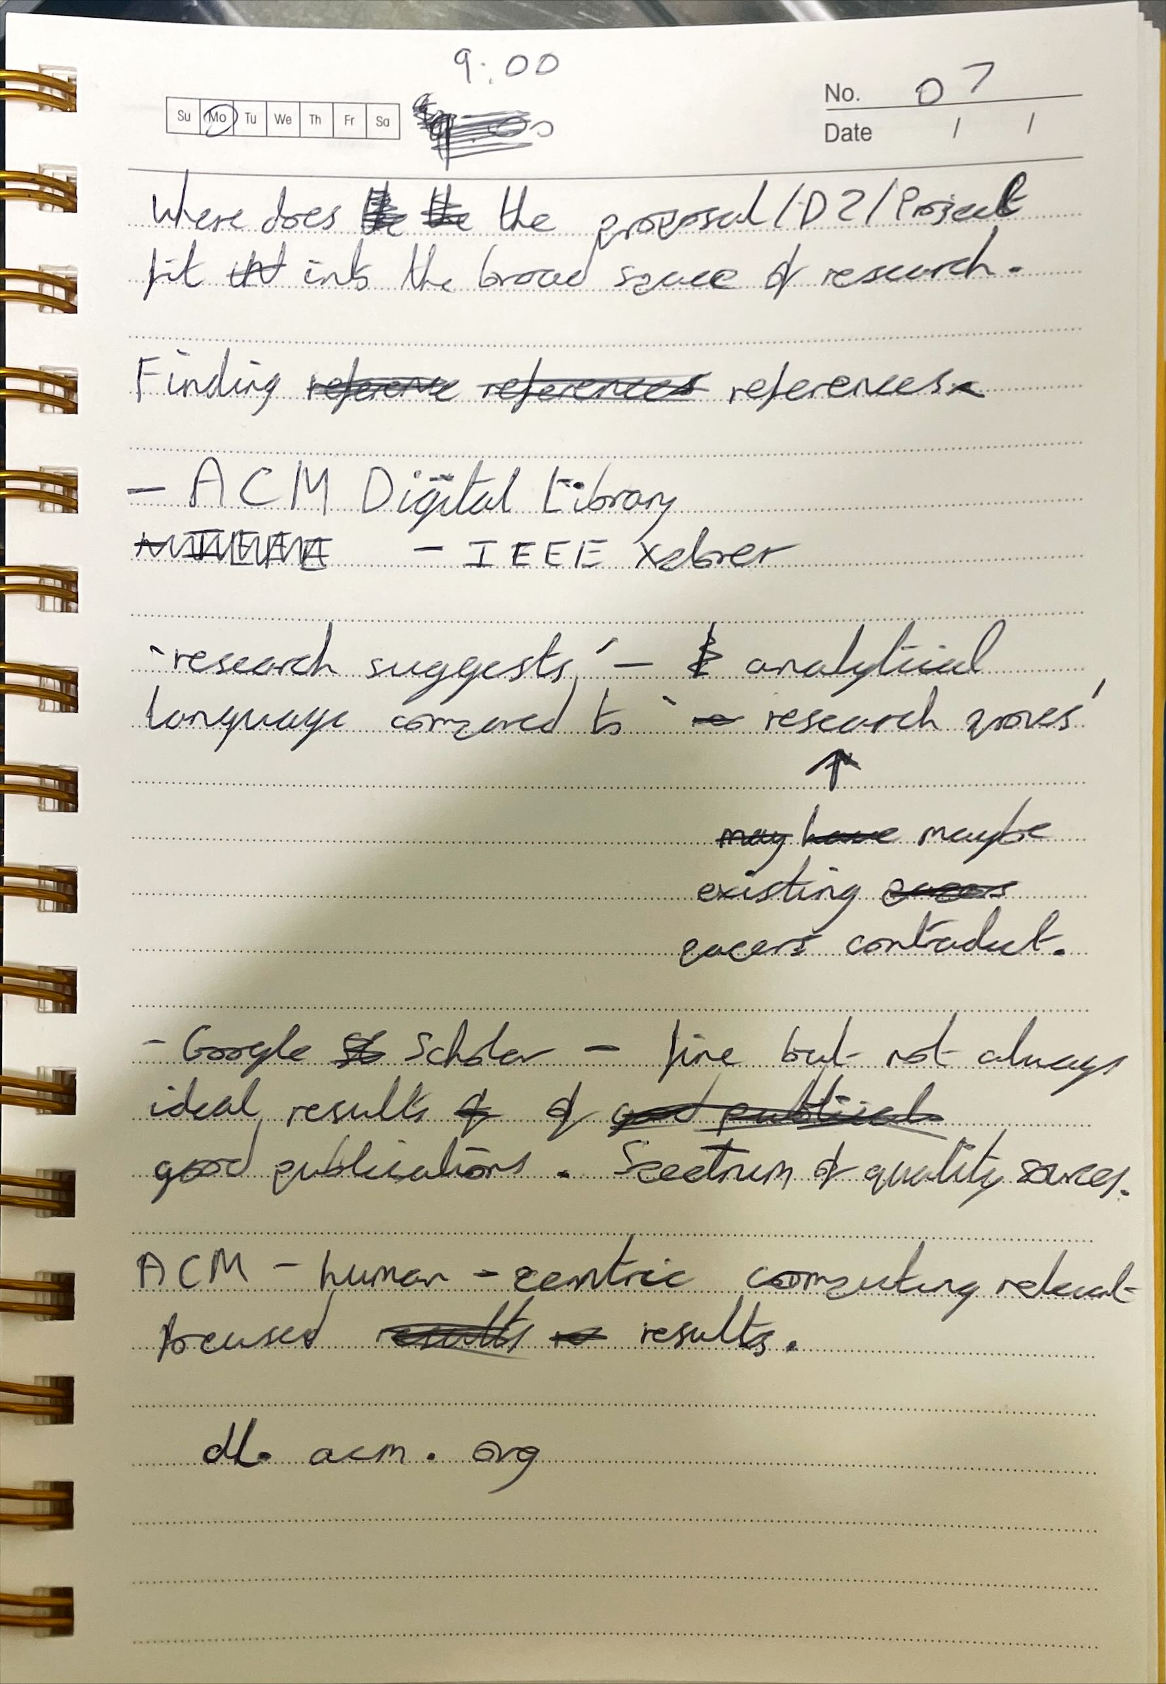 9:00
Su Mo Tu We Th Fr Sa
No. 07
Date / /
Where does the the the proposal/D2/Project
fit int into the broad space of research.
Finding reference references references
- ACM Digital Library
- IEEE Xplorer
'research suggests' - analytical
language compared to 'research proves'
↑
may have maybe
existing papers
papers contradict.
- Google Scholar - fine but not always
ideal results of of good publicat
good publications. Spectrum of quality sources.
ACM - human-centric computing relevant
focused results results.
dl. acm. org